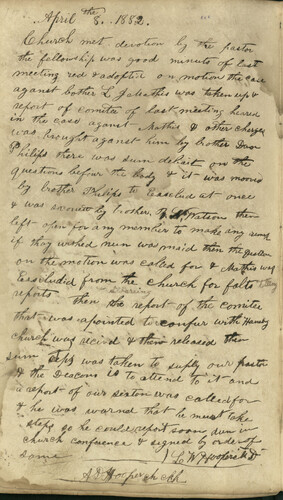 April the 8. 1882.
Church met devotion by the pastor
the fellowship was good minute of last
meeting red & adopted on motion the case
against bother L J Mathis was taken up &
report of comitee of last meeting herred
in the case against Mathis & other charges
was brought against him by brother
Philips there was sum debait on the
questions before the body & it was mooved
by brother Philips to Excelud at once
& was by brother Watson then
left open for any member to make any
if they wished men was maid then the
on the motion was caled for & Mathis was
Excluded from the church for falts
reports then the report of the Comitee
that was apointed to confur with
church was recivd & them released then
sum was taken to suply our pastor
& the Deacons is to attend to it and
a report of our was caled for
& he was warnd that he must take
steps so he could report soon dun in
church confuence & signed by order of
same